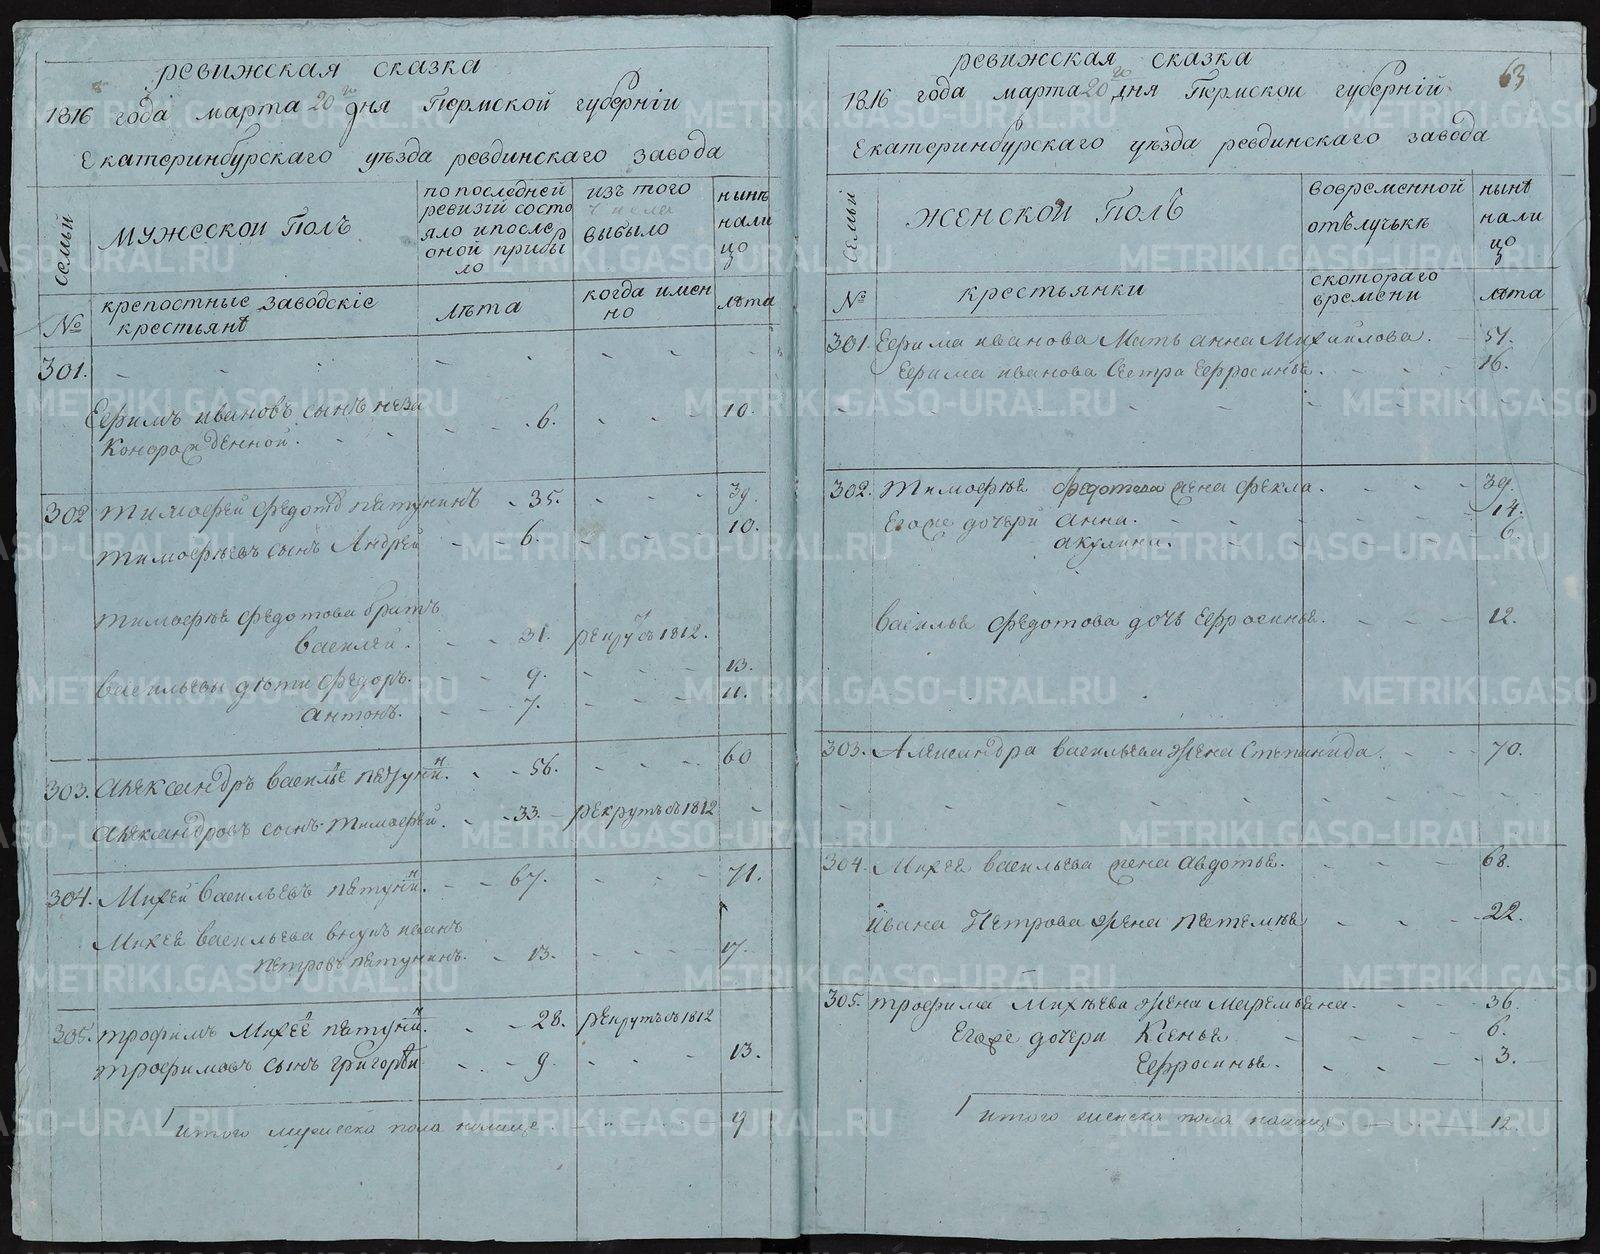 ревижская сказка
1816 года марта 20го дня Пермской губернiи
Екатеринбурскаго уѣзда ревдинскаго завода
Семьи
мужеской Полъ
по последней
ревизiй состо
яло ипослер
оной прибы
ло
изъ того
числа
выбыло
нынѣ
нали
цо
№
крепостные заводскiе
крестьянѣ
лѣта
когда имен
но
лѣта
301.
Ефимъ ивановъ сынъ неза
конорожденной.
6.
10.
302
тимофей федотовъ петунинъ
35.
39.
тимофеевъ сынъ Андрей
6.
10.
тимофѣя федотова братъ
Василей.
31.
рекрутъ съ 1812.
васильевы дѣти федоръ.
9.
13.
антонъ.
7.
11.
303.
Александръ василье петунин.
56.
60
Александровъ сынъ тимофей.
33.
рекрутъ съ 1812
304.
Михей васильевъ петунин.
67.
71.
Михея васильева внукъ иванъ
петровъ петунинъ.
13.
17.
305.
трофимъ михее петунин.
28.
рекрутъ съ 1812
трофимовъ сынъ григорей
9.
13.
итого мужеска пола налице
9
ревижская сказка
63
1816 года марта 20го дня Пермской губернiй
Екатеринбурскаго уѣзда ревдинскаго завода
Семьи
женской Полъ
вовременной
отѣлучькѣ
нынѣ
нали
цо
№
крестьянки
скотораго
времени
лѣта
301.
Ефима иванова Мать анна Михаилова.
51.
Ефима иванова Сестра Ефросинья.
16.
302.
тимофѣя федотова жена фекла.
39.
Егоже дочери анна.
14.
акулина.
6.
василья федотова дочь Ефросинья.
12.
303.
Александра васильева жена Степанида.
70.
304.
Михея васильева жена авдотья.
68.
ивана Петрова жена
22.
305.
трофима михѣева жена маремьяна.
36.
Егоже дочери Ксенья
6.
Ефросинья.
3.
итого женска пола налице
12.
METRIKI.GASO-URAL.RU